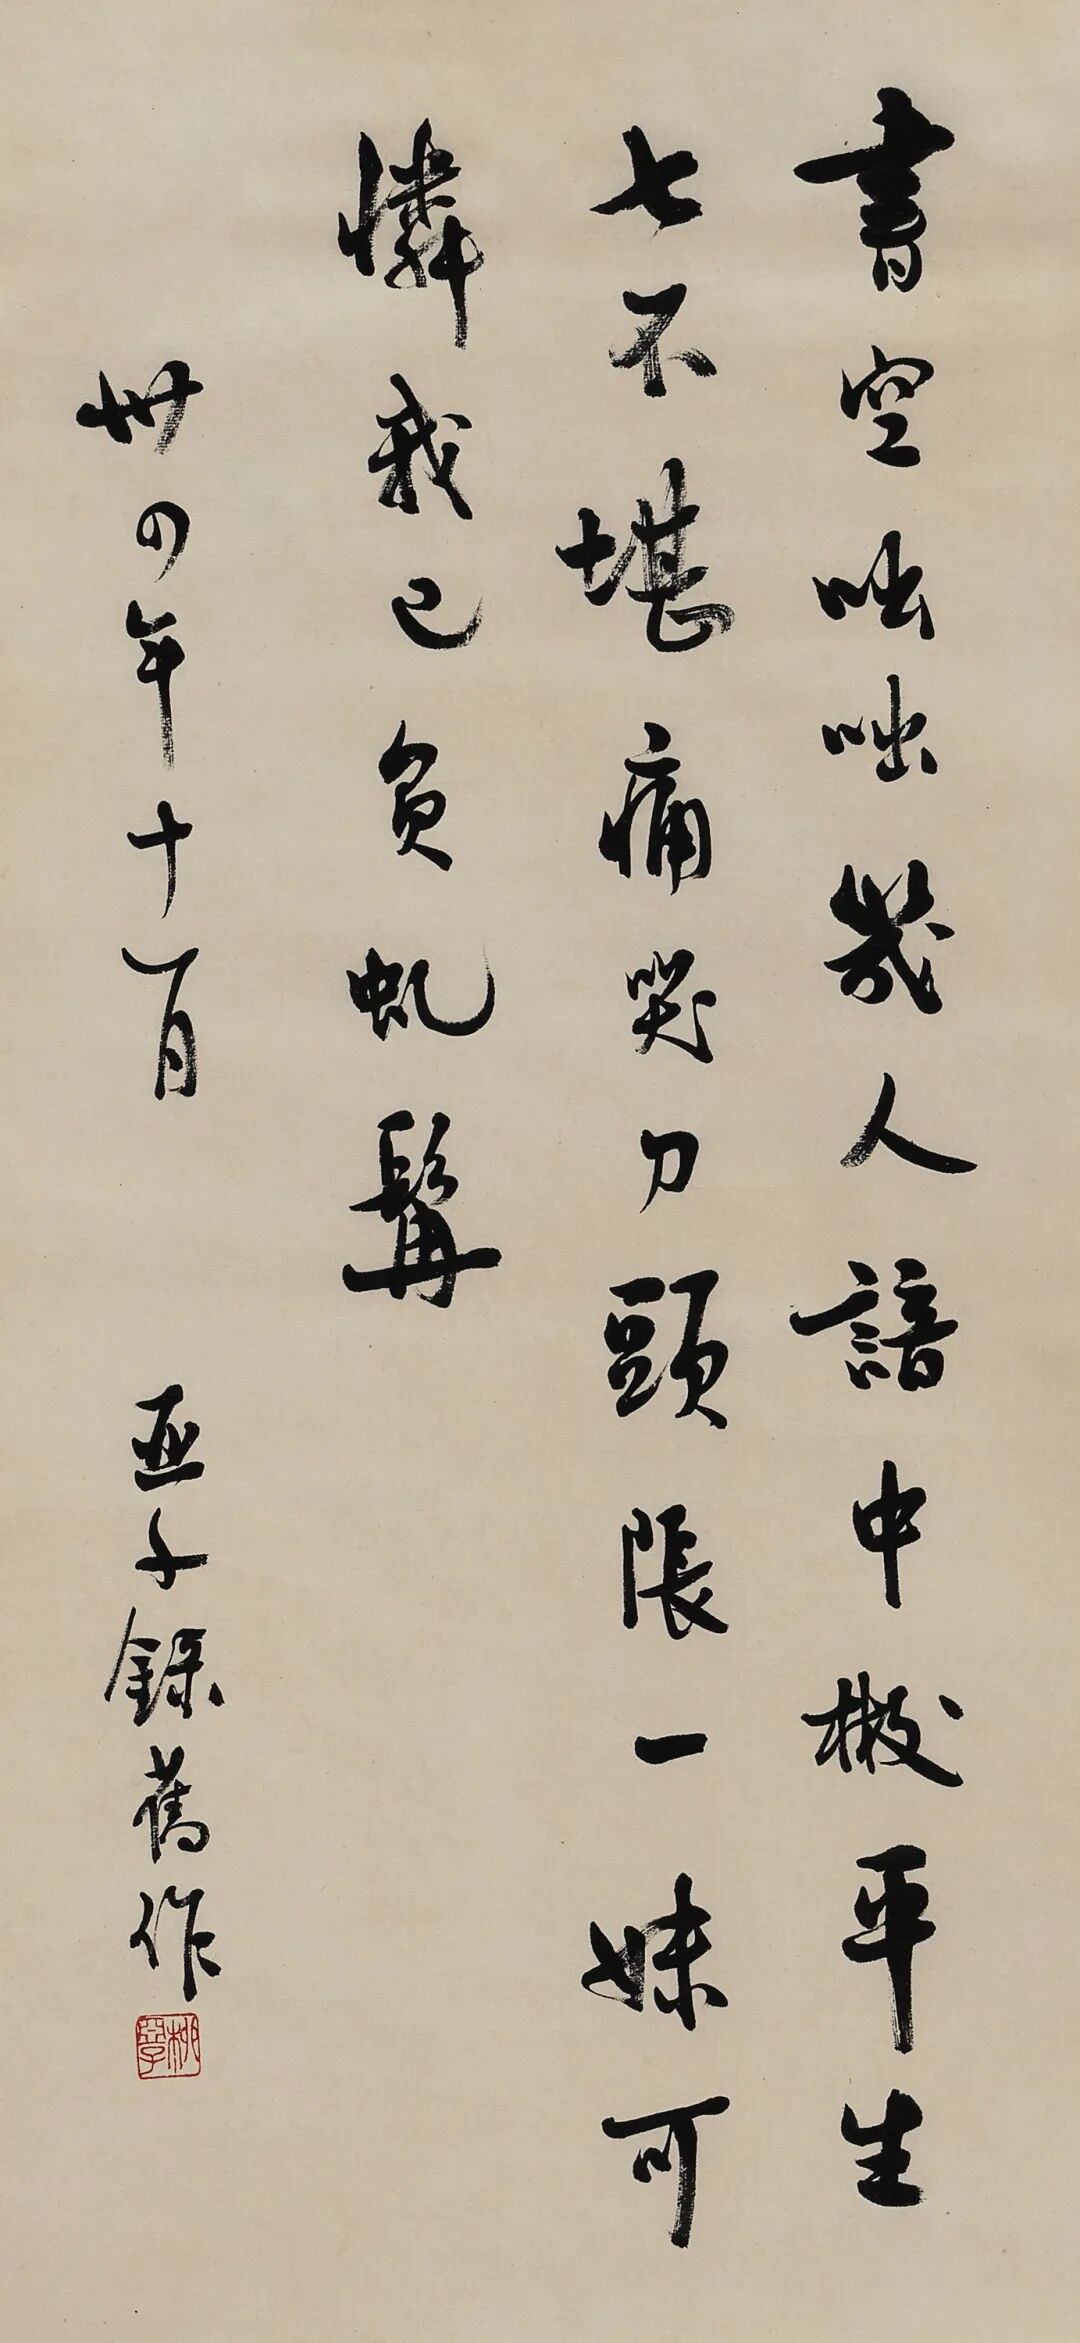 書空咄咄幾人諳中散平生
七不堪痛哭刀頭張一妹可
憐我已負虬髯
卅四年十一月 亞子錄舊作
柳亞子